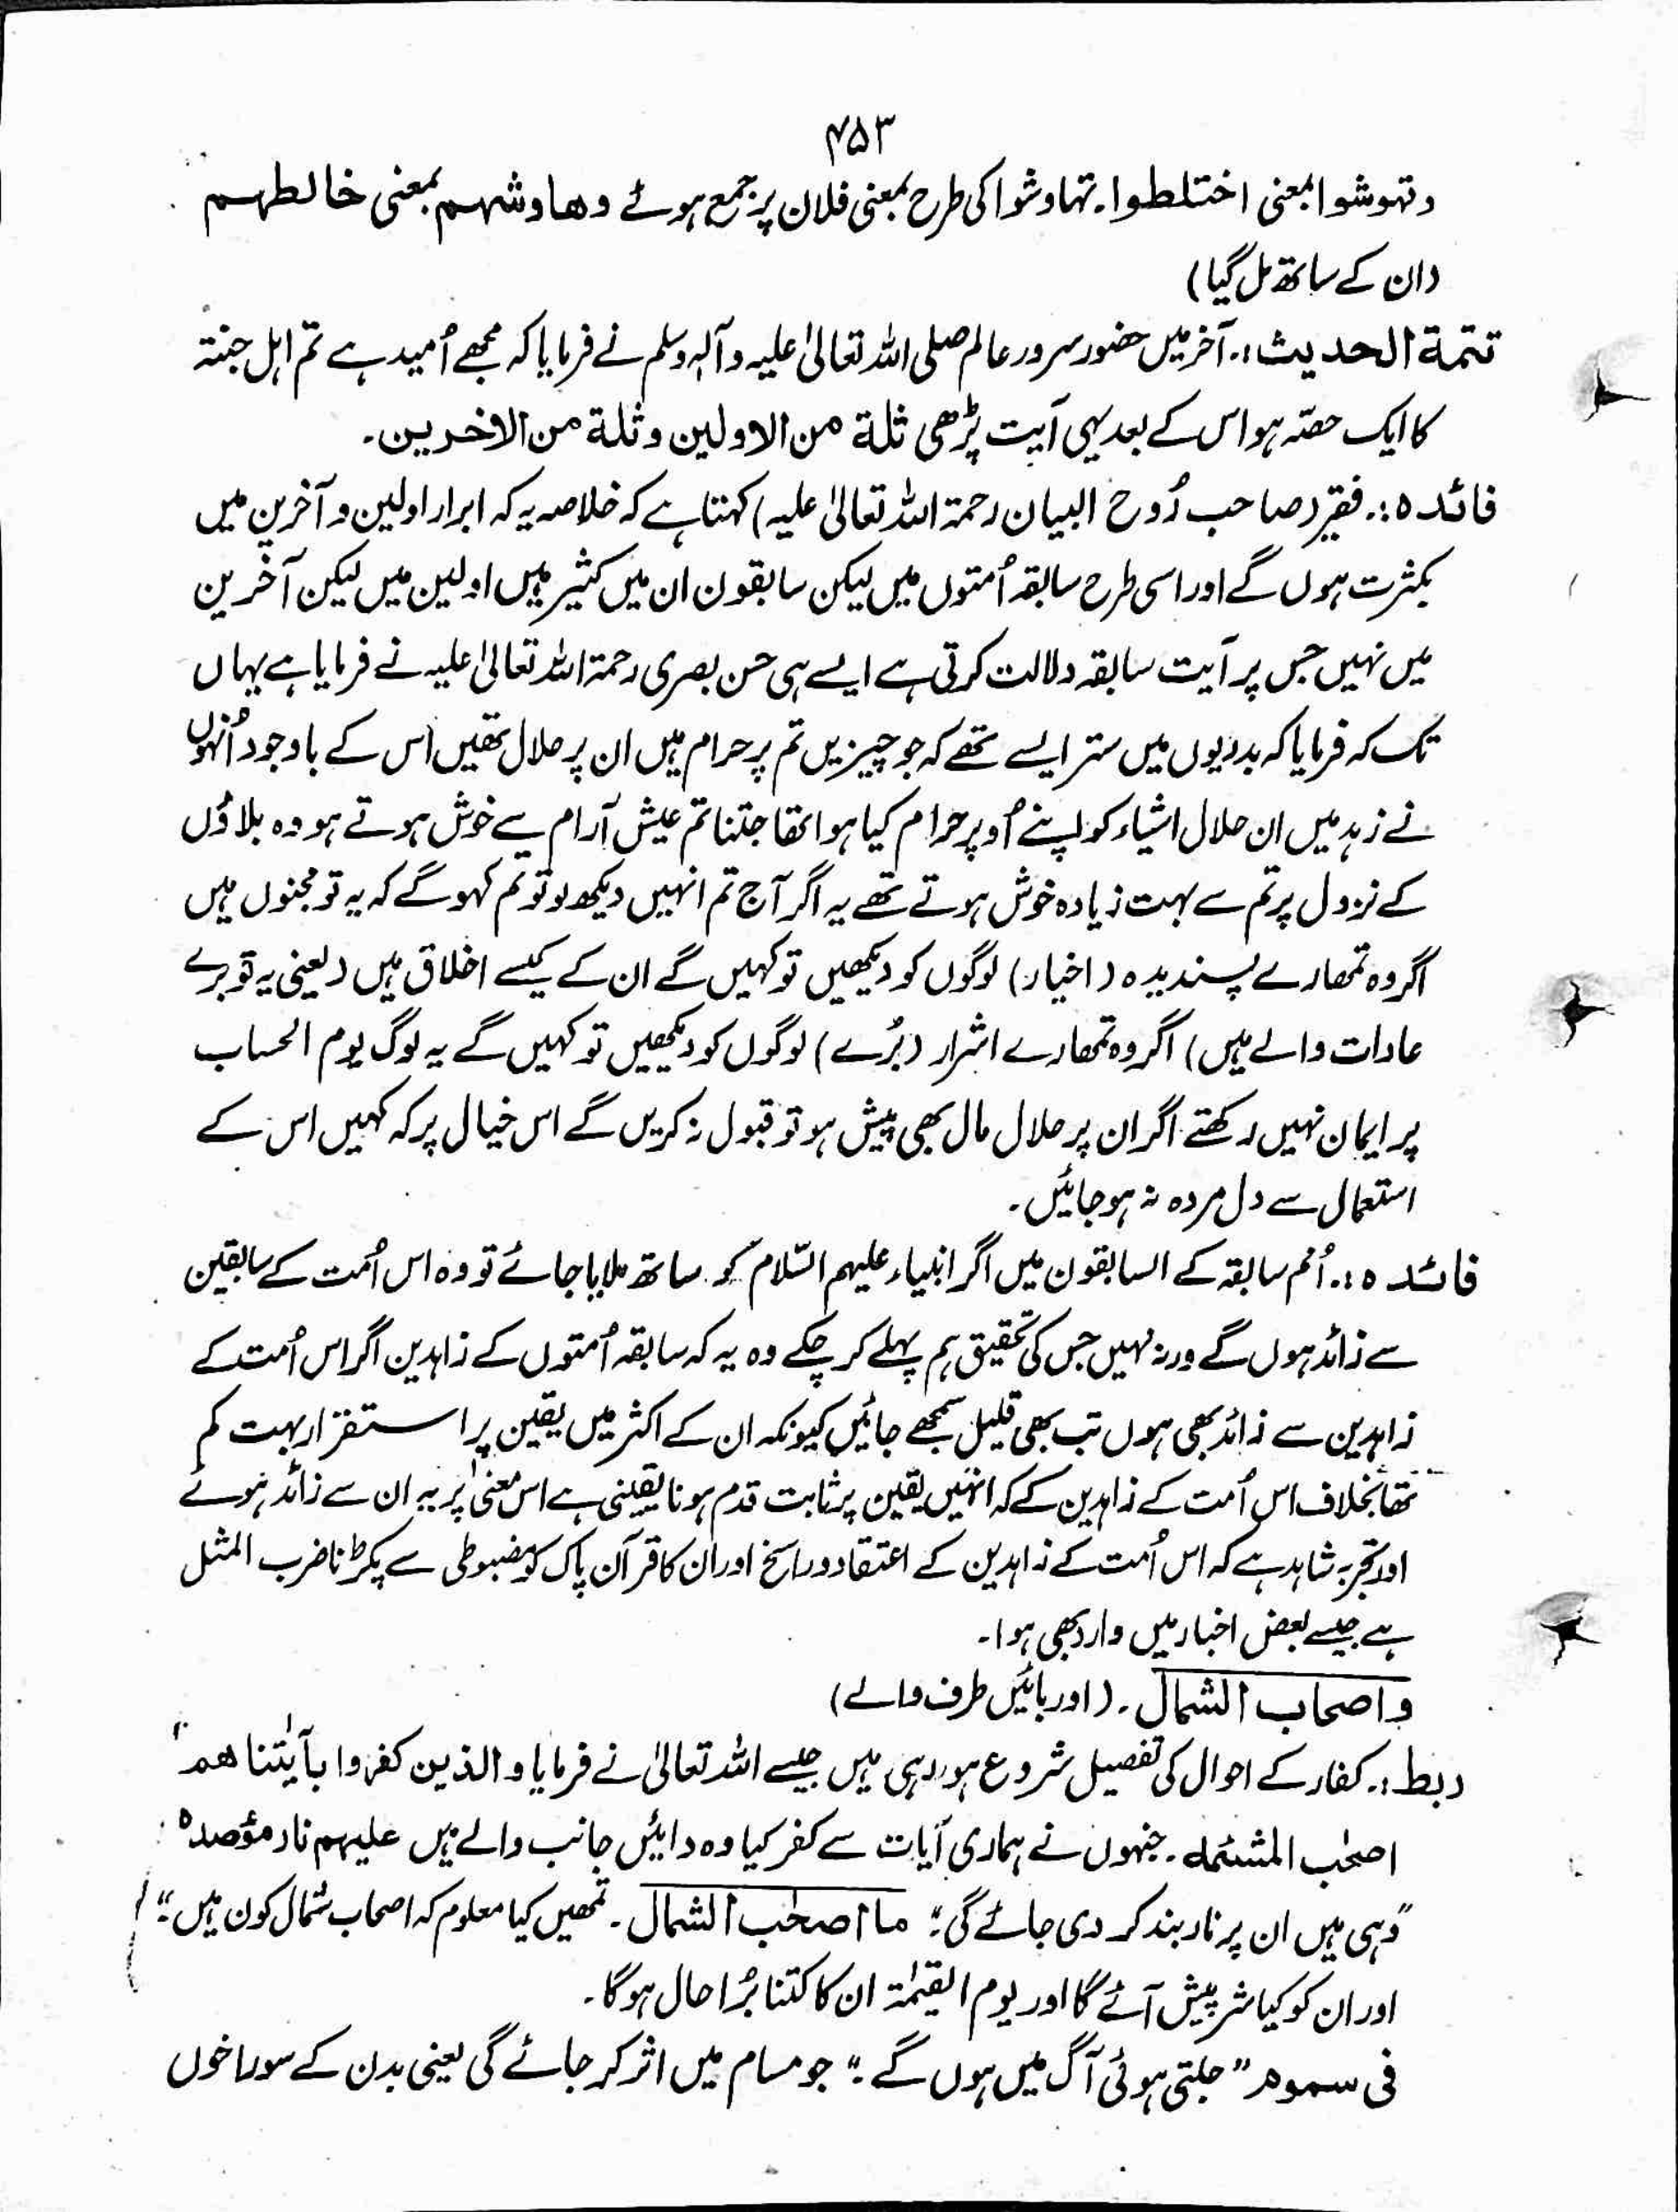 ۴۵۳
وتہوشوا بمعنی اختلطوا۔ تہاوشوا کی طرح بمعنی فلان پر جمع ہوئے وھاوشہم بمعنی خالطہم
(ان کے ساتھ مل گیا)
تتمۃ الحدیث:۔ آخر میں حضور سرور عالم صلی اللہ تعالیٰ علیہ وآلہٖ وسلم نے فرمایا کہ مجھے اُمید ہے تم اہل جنۃ
کا ایک حصّہ ہو اس کے بعد یہی آیت پڑھی ثلۃ من الاولین وثلۃ من الاخرین۔
فائدہ:۔ فقیر (صاحب رُوح البیان رحمۃ اللہ تعالیٰ علیہ) کہتا ہے کہ خلاصہ یہ کہ ابرار اولین و آخرین میں
بکثرت ہوں گے اور اسی طرح سابقہ اُمتوں میں لیکن سابقون ان میں کثیر ہیں اولین میں لیکن آخرین
میں نہیں جس پر آیت سابقہ دلالت کرتی ہے ایسے ہی حسن بصری رحمۃ اللہ تعالیٰ علیہ نے فرمایا ہے یہاں
تک کہ فرمایا کہ بدریوں میں ستر ایسے تھے کہ جو چیزیں تم پر حرام ہیں ان پر حلال تھیں اس کے باوجود اُنہوں
نے زہد میں ان حلال اشیاء کو اپنے اُوپر حرام کیا ہوا تھا جتنا تم عیش آرام سے خوش ہوتے ہو وہ بلاؤں
کے نزول پر تم سے بہت زیادہ خوش ہوتے تھے یہ اگر آج تم انہیں دیکھ لو تو تم کہو گے کہ یہ تو مجنوں ہیں
اگر وہ تمھارے پسندیدہ (اخیار) لوگوں کو دیکھیں تو کہیں گے ان کے کیسے اخلاق ہیں (یعنی یہ تو برے
عادات والے ہیں) اگر وہ تمھارے اشرار (بُرے) لوگوں کو دیکھیں تو کہیں گے یہ لوگ یوم الحساب
پر ایمان نہیں رکھتے اگر ان پر حلال مال بھی پیش ہو تو قبول نہ کریں گے اس خیال پر کہ کہیں اس کے
استعمال سے دل مردہ نہ ہو جائیں۔
فائدہ:۔ اُمم سابقہ کے السابقون میں اگر انبیاء علیہم السّلام کو ساتھ ملایا جائے تو وہ اس اُمت کے سابقین
سے زائد ہوں گے ورنہ نہیں جس کی تحقیق ہم پہلے کر چکے وہ یہ کہ سابقہ اُمتوں کے زاہدین اگر اس اُمت کے
زاہدین سے زائد بھی ہوں تب بھی قلیل سمجھے جائیں کیونکہ ان کے اکثر میں یقین پر استقرار بہت کم
تھا بخلاف اس اُمت کے زاہدین کے کہ انہیں یقین پر ثابت قدم ہونا یقینی ہے اس معنیٰ پر یہ ان سے زائد ہوئے
اور تجربہ شاہد ہے کہ اس اُمت کے زاہدین کے اعتقاد و راسخ اور ان کا قرآن پاک کو مضبوطی سے پکڑنا ضرب المثل
ہے جیسے بعض اخبار میں وارد بھی ہوا۔
واصحاب الشمال۔ (اور بائیں طرف والے)
ربط:۔ کفار کے احوال کی تفصیل شروع ہو رہی ہیں جیسے اللہ تعالیٰ نے فرمایا والذین کفروا بآیٰتنا ھم
اصحٰب المشئمہ۔ جنہوں نے ہماری آیات سے کفر کیا وہ دائیں جانب والے ہیں علیہم نار مؤصدہ
"وہی ہیں ان پر نار بند کر دی جائے گی" ما اصحٰب الشمال۔ تمھیں کیا معلوم کہ اصحاب شمال کون ہیں"
اور ان کو کیا شر پیش آئے گا اور یوم القیمٰۃ ان کا کتنا بُرا حال ہوگا۔
فی سموم "جلتی ہوئی آگ میں ہوں گے" جو مسام میں اثر کر جائے گی یعنی بدن کے سوراخوں